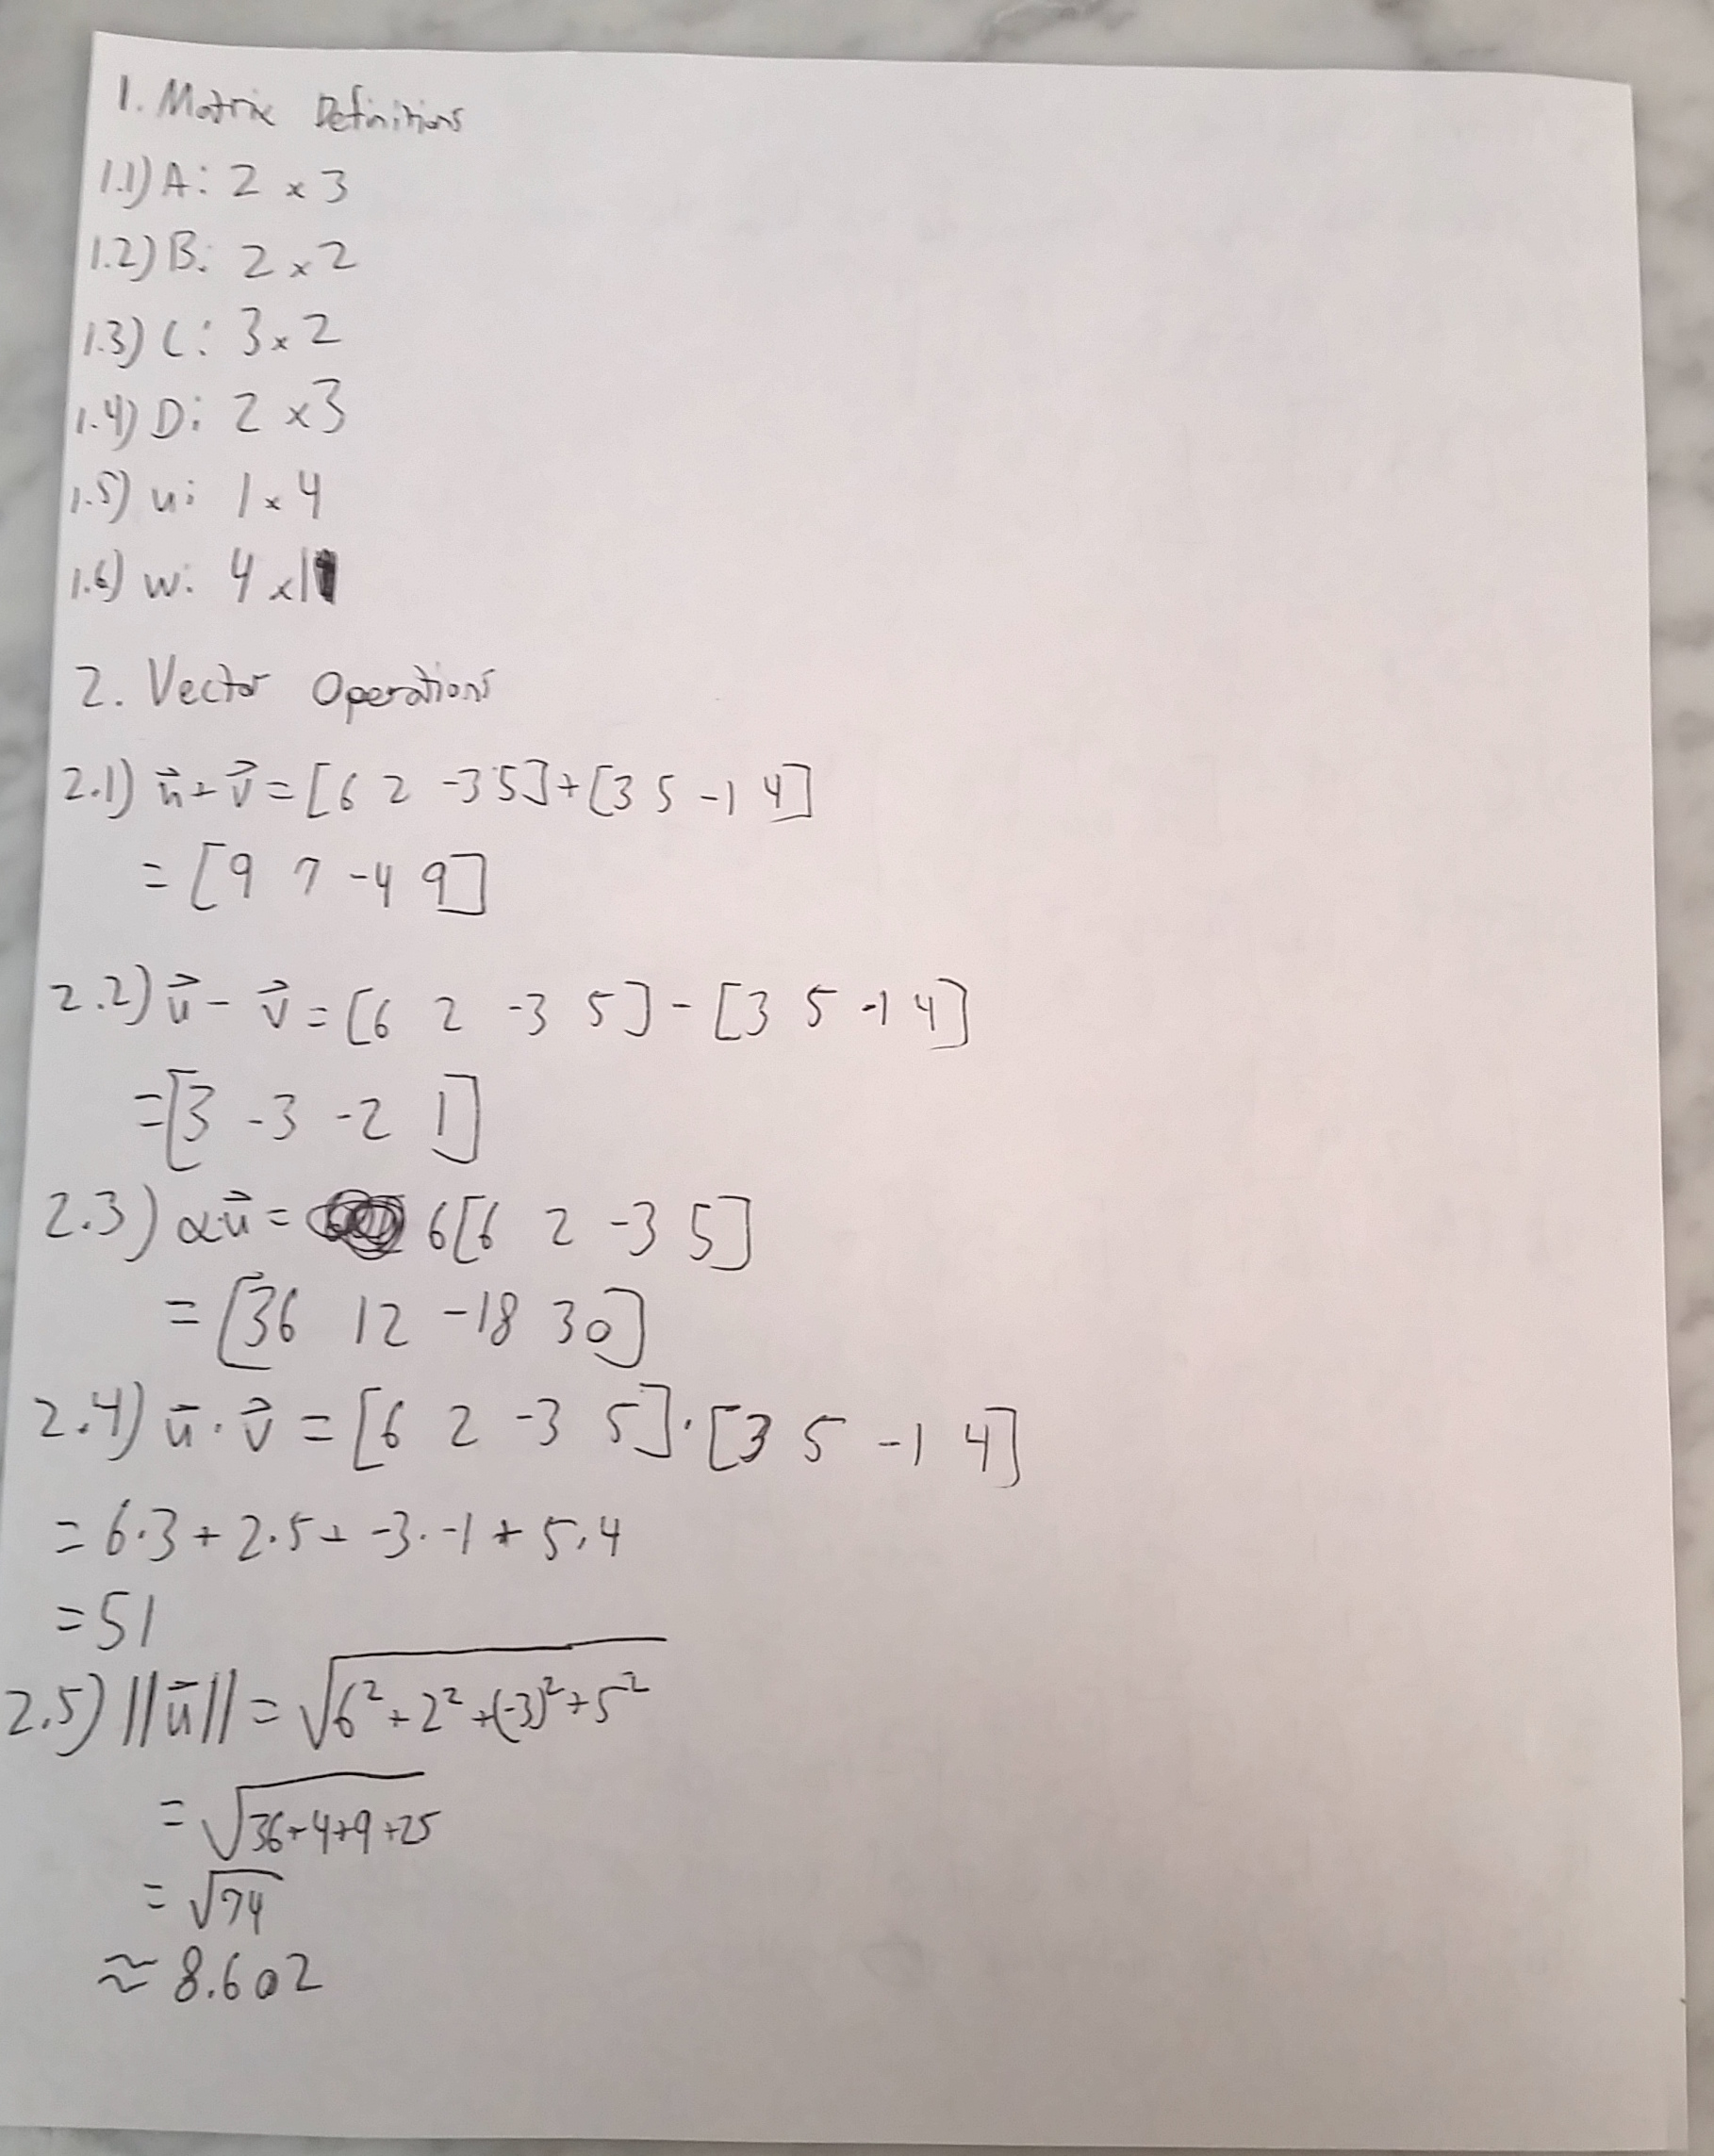 1. Matrix Definitions
1.1) A: 2 x 3
1.2) B: 2 x 2
1.3) C: 3 x 2
1.4) D: 2 x 3
1.5) u: 1 x 4
1.6) w: 4 x 1
2. Vector Operations
2.1) u⃗ + v⃗ = [6 2 -3 5] + [3 5 -1 4]
= [9 7 -4 9]
2.2) u⃗ - v⃗ = [6 2 -3 5] - [3 5 -1 4]
= [3 -3 -2 1]
2.3) αu⃗ = 6[6 2 -3 5]
= [36 12 -18 30]
2.4) u⃗ · v⃗ = [6 2 -3 5] · [3 5 -1 4]
= 6·3 + 2·5 + -3·-1 + 5·4
= 51
2.5) ||u⃗|| = √(6² + 2² + (-3)² + 5²)
= √(36+4+9+25)
= √74
≈ 8.602